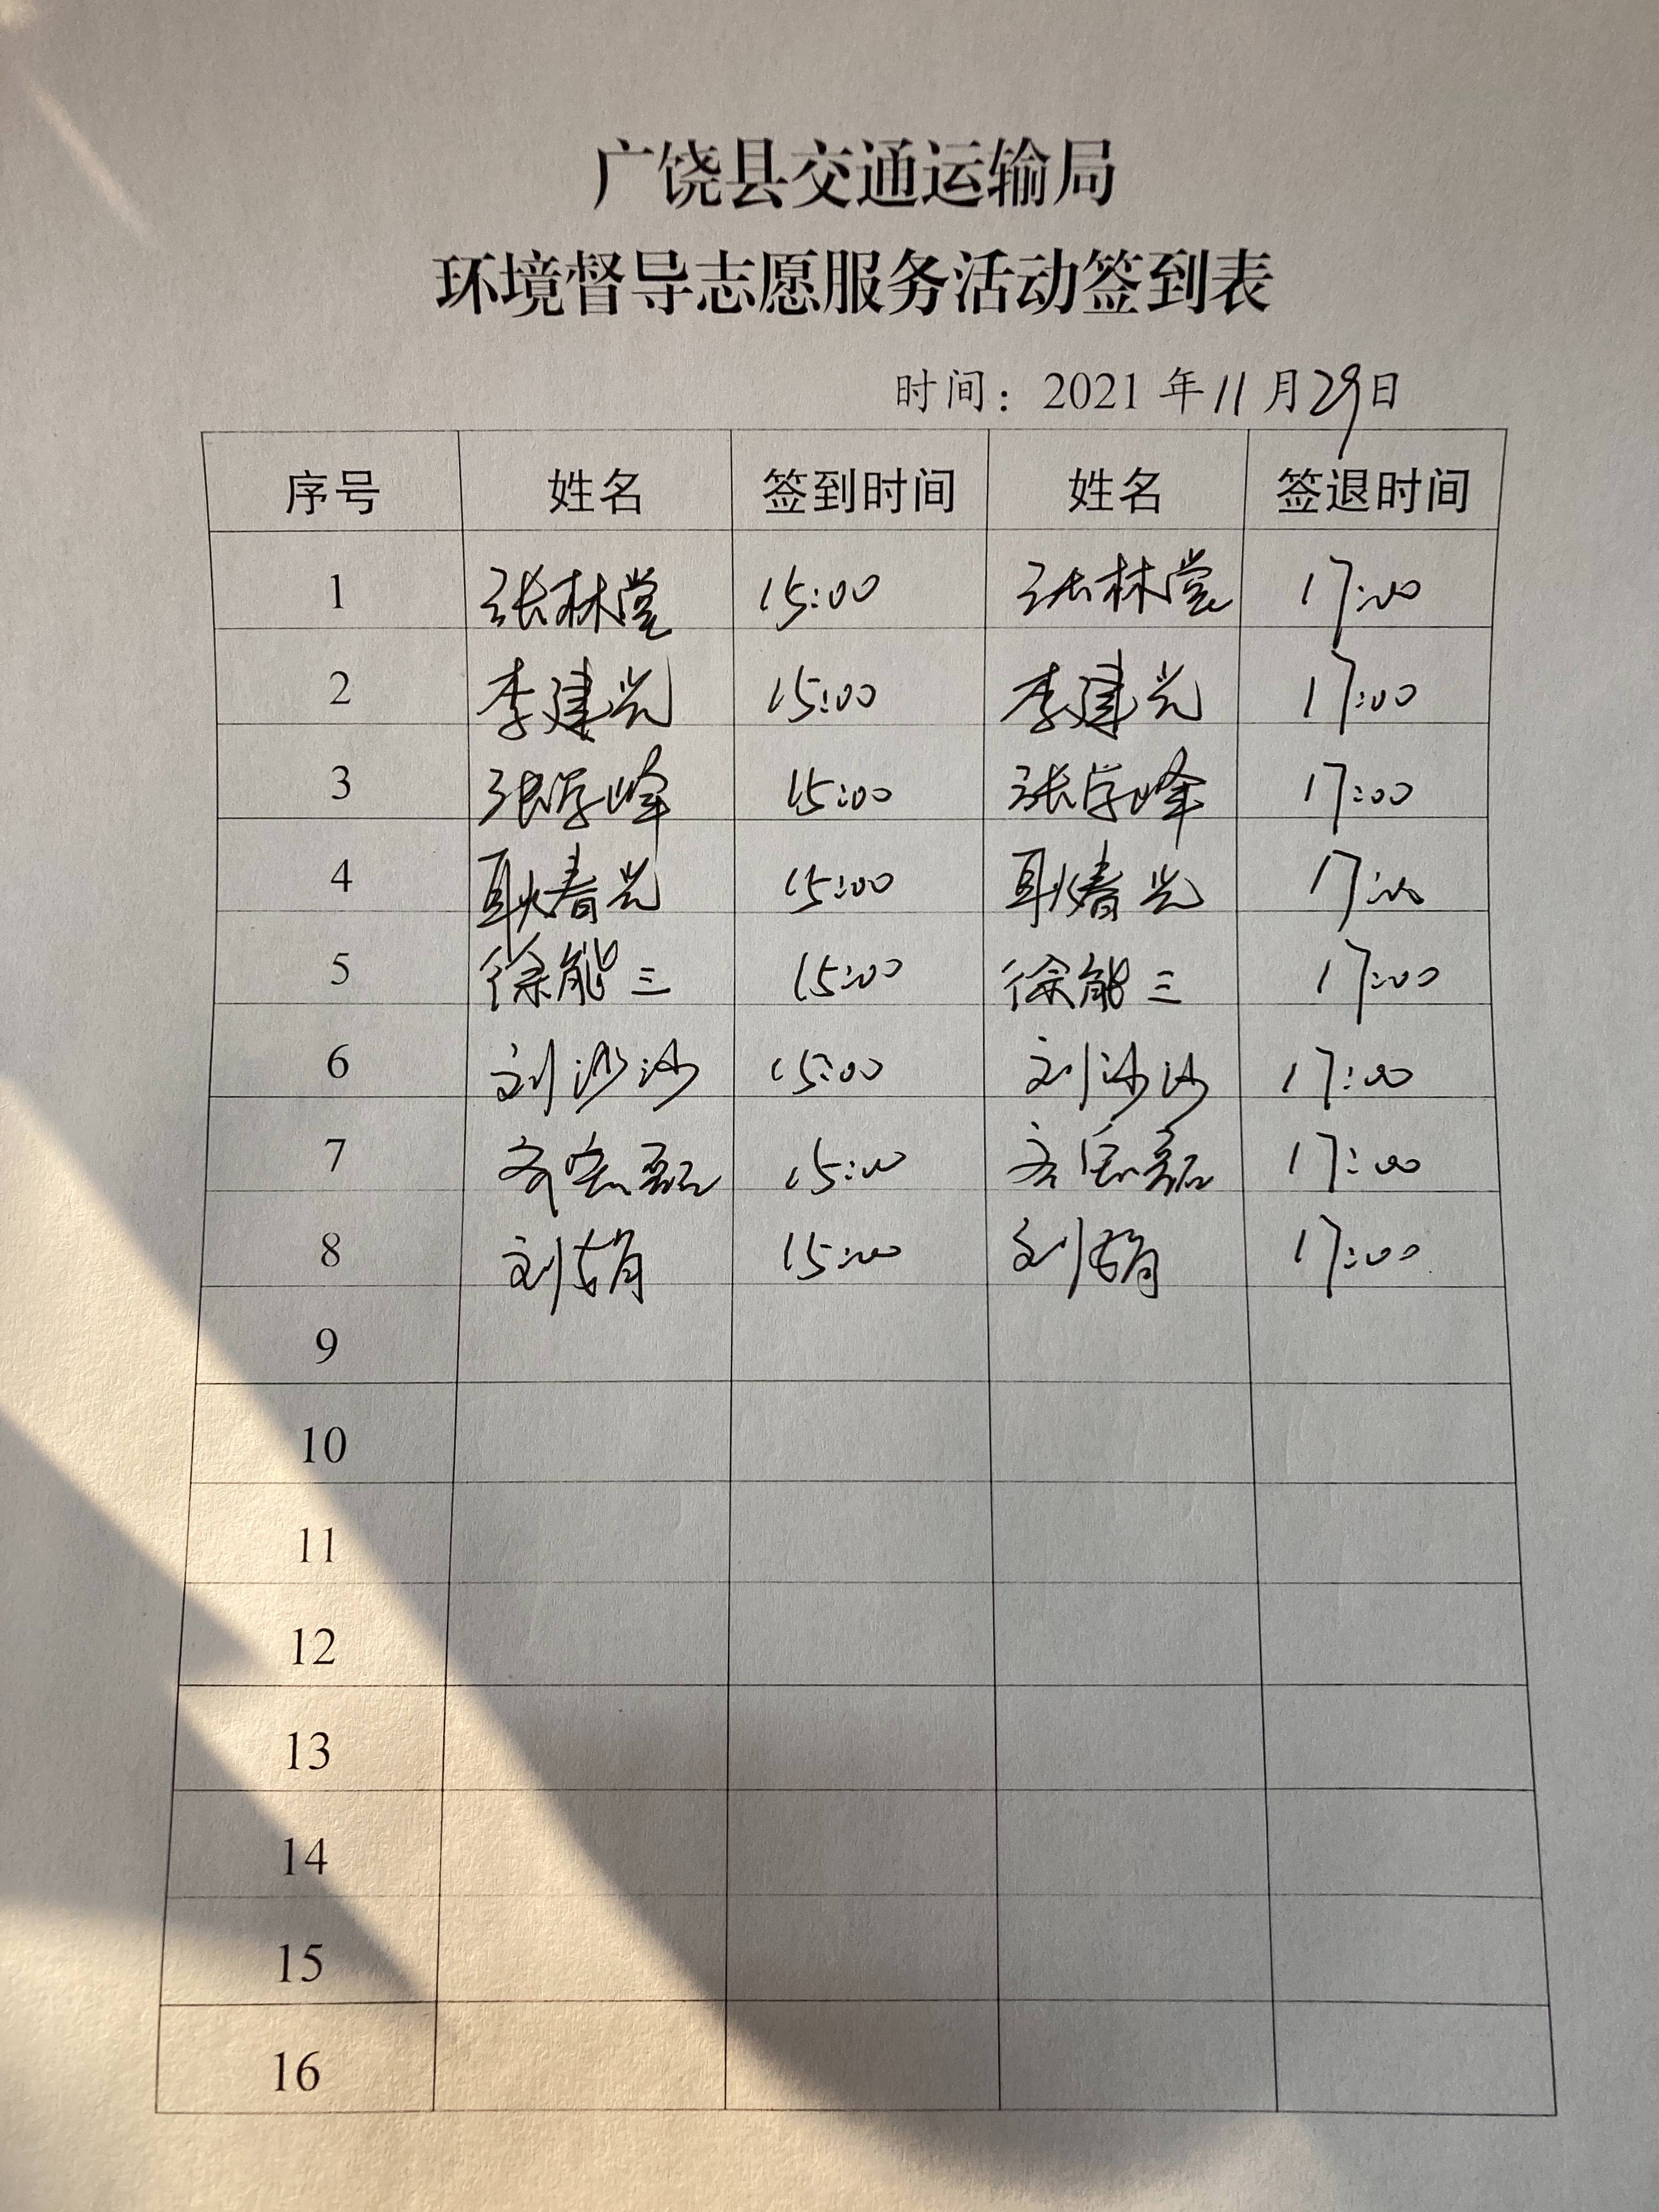 广饶县交通运输局
环境督导志愿服务活动签到表
时间：2021 年 11 月 29 日
序号 姓名 签到时间 姓名 签退时间
1 张林堂 15:00 张林堂 17:00
2 李建光 15:00 李建光 17:00
3 张学峰 15:00 张学峰 17:00
4 耿春光 15:00 耿春光 17:00
5 徐能三 15:00 徐能三 17:00
6 刘沙沙 15:00 刘沙沙 17:00
7 15:00 17:00
8 刘 15:00 刘 17:00
9
10
11
12
13
14
15
16